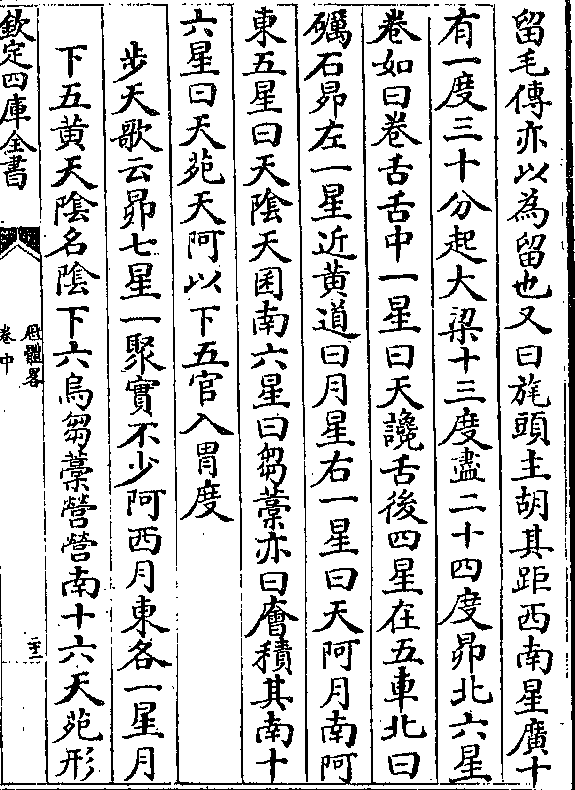 留毛傳亦以為留也又曰旄頭主胡其距西南星廣十
有一度三十分起大梁十三度盡二十四度昴北六星
卷如曰卷舌舌中一星曰天讒舌後四星在五車北曰
礪石昴左一星近黄道曰月星右一星曰天阿月南阿
東五星曰天陰天囷南六星曰芻藁亦曰廥積其南十
六星曰天苑天阿以下五官入胃度
步天歌云昴七星一聚實不少阿西月東各一星月
下五黄天陰名陰下六烏芻藁營營南十六天苑形
欽定四庫全書
卷中
二十二